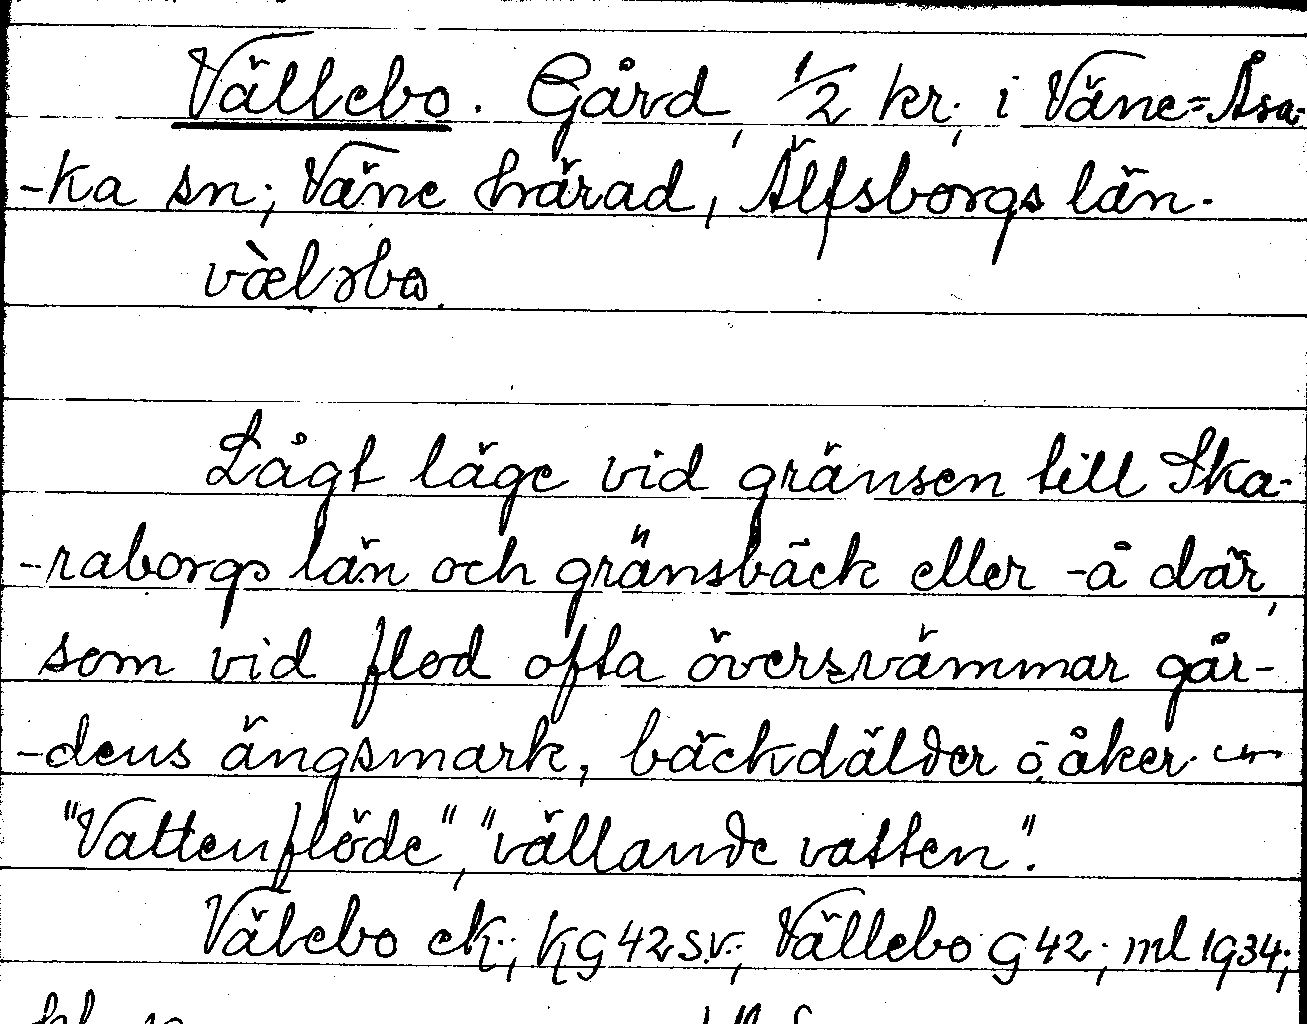 Vällebo. Gård, 1/2 kr, i Väne=Åsa-
-ka sn; Väne härad, Älfsborgs län.
vὰeləbω.
Lågt läge vid gränsen till Ska-
-raborgs län och gränsbäck eller -å där,
som vid flod ofta översvämmar går-
-dens ängsmark, bäckdälder o. åker.
"Vattenflöde", "vällande vatten".
Välebo ek.; KG 42 s.v.; Vällebo G 42; ml 1934;